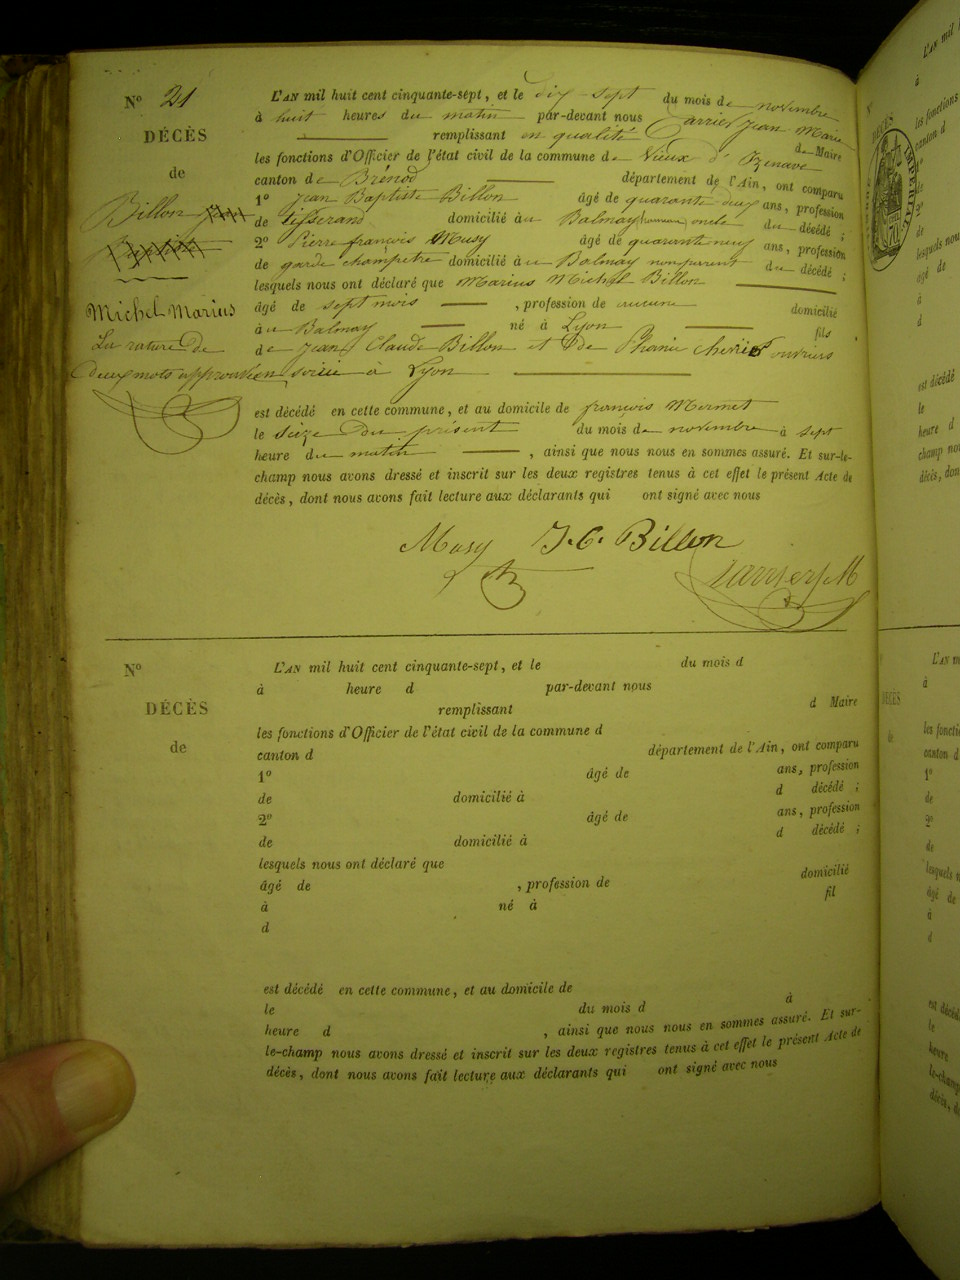 N° 21
DÉCÈS
de
Billon
Michel Marius
La rature de
deux mots approuvée
L'AN mil huit cent cinquante-sept, et le dix-sept du mois de novembre
à huit heures du matin par-devant nous Carrier Jean Marie
remplissant en qualité de Maire
les fonctions d'Officier de l'état civil de la commune de Vieux d'Izenave
canton de Brénod département de l'Ain, ont comparu
1° Jean Baptiste Billon âgé de quarante deux ans, profession
de tisserand domicilié au Balmay oncle du décédé ;
2° Pierre françois Musy âgé de quaranteneuf ans, profession
de garde champetre domicilié au Balmay non parent du décédé ;
lesquels nous ont déclaré que Marius Michel Billon
âgé de sept mois , profession de aucune domicilié
au Balmay né à Lyon fils
de Jean Claude Billon et de Phanie ouvriers
en soie à Lyon
est décédé en cette commune, et au domicile de françois Mermet
le seize du présent du mois de novembre à sept
heure du matin , ainsi que nous nous en sommes assuré. Et sur-le-
champ nous avons dressé et inscrit sur les deux registres tenus à cet effet le présent Acte de
décès, dont nous avons fait lecture aux déclarants qui ont signé avec nous
Musy J. C. Billon
N°
DÉCÈS
de
L'AN mil huit cent cinquante-sept, et le du mois d
à heure d par-devant nous
remplissant d Maire
les fonctions d'Officier de l'état civil de la commune d
canton d département de l'Ain, ont comparu
1° âgé de ans, profession
de domicilié à d décédé ;
2° âgé de ans, profession
de domicilié à d décédé ;
lesquels nous ont déclaré que
âgé de , profession de domicilié
à né à fil
d
est décédé en cette commune, et au domicile de
le du mois d à
heure d , ainsi que nous nous en sommes assuré. Et sur-
le-champ nous avons dressé et inscrit sur les deux registres tenus à cet effet le présent Acte de
décès, dont nous avons fait lecture aux déclarants qui ont signé avec nous